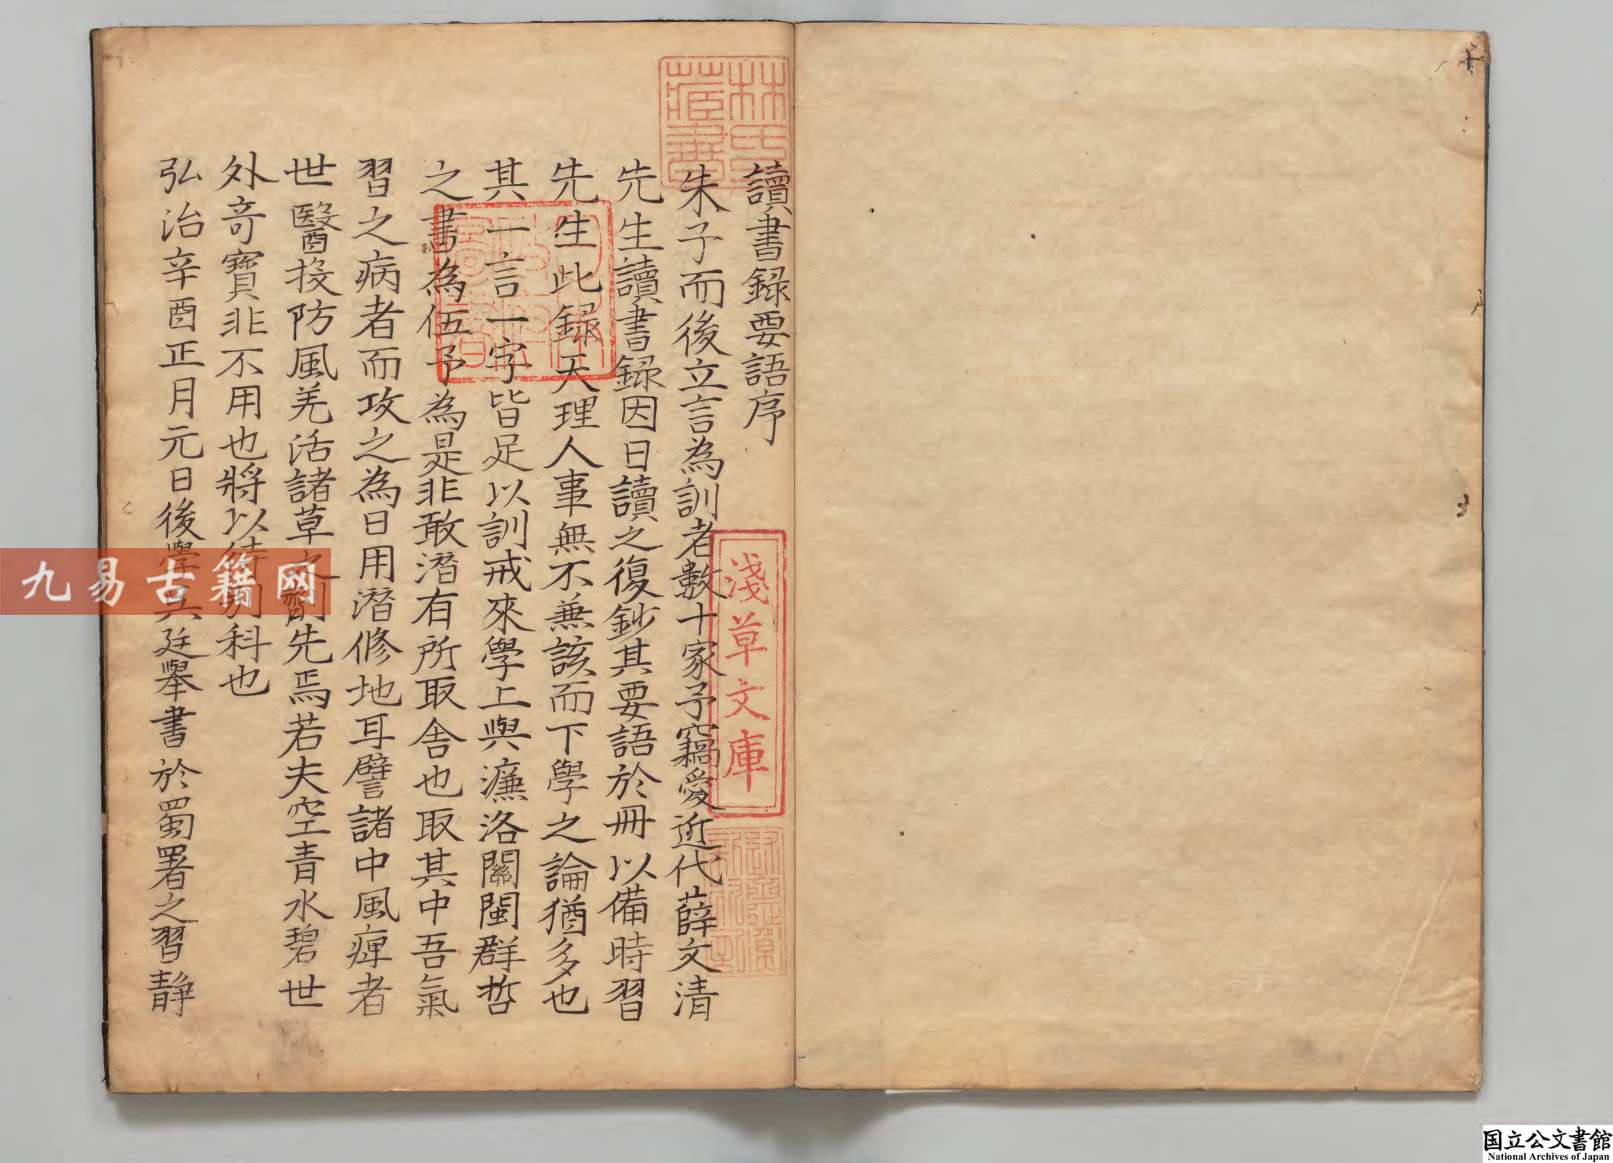 讀書録要語序
朱子而後立言為訓者數十家予竊愛近代薛文清
先生讀書録因日讀之復鈔其要語於冊以備時習
先生此録天理人事無不兼該而下學之論猶多也
其一言一字皆足以訓戒來學上與濂洛關閩群哲
之書為伍予為是非敢潛有所取舍也取其中吾氣
習之病者而攻之為日用潛修地耳譬諸中風痺者
世醫投防風羌活諸草之劑先焉若夫空青水碧世
外奇寶非不用也將以待別科也
弘治辛酉正月元日後學吳廷舉書於蜀署之習靜
林氏藏書
淺草文庫
九易古籍网
国立公文書館
National Archives of Japan